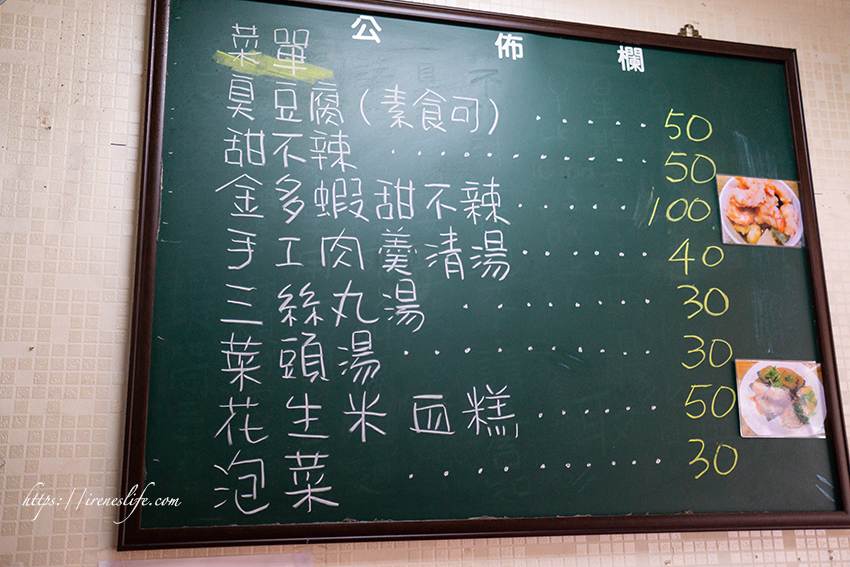 公佈欄
菜單
臭豆腐(素食可)······50
甜不辣··········50
金多蝦甜不辣······100
手工肉羹清湯······40
三絲丸湯········30
菜頭湯··········30
花生米血糕······50
泡菜··········30
https://ireneslife.com